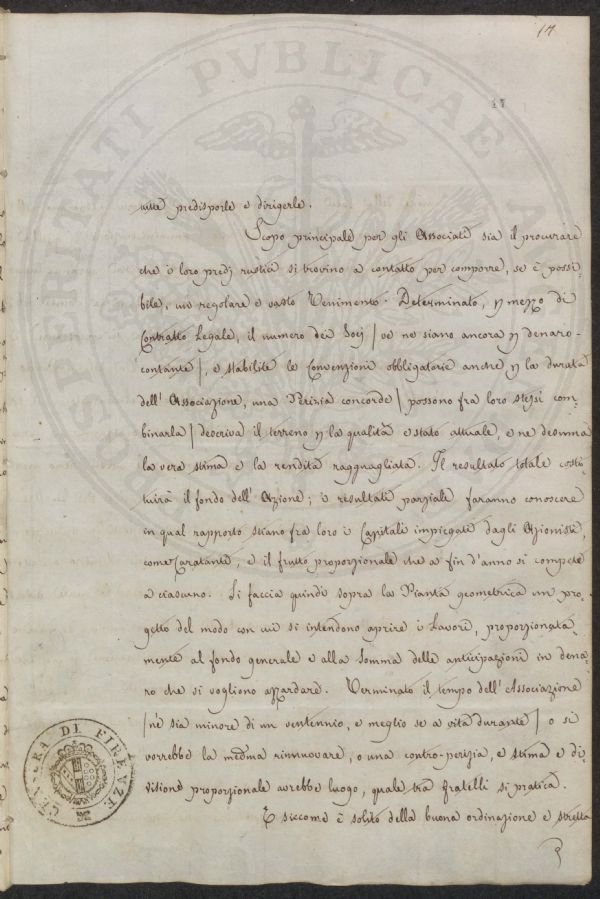 17
17
tutte predisporle e dirigerle.
Scopo principale per gli Associati sia il procurare
che i loro predj rustici si trovino a contatto per comporre, se è possi-
bile, un regolare e vasto Tenimento. Determinato, p mezzo di
Contratto Legale, il numero dei Socj / ve ne siano ancora p denaro-
contante /, e stabilite le Convenzioni obbligatorie anche p la durata
dell' Associazione, una Perizia concorde / possono fra loro stessi com-
binarla / descriva il terreno p la qualità e stato attuale, e ne desuma
la vera stima e la rendita ragguagliata. Il resultato totale costi-
tuirà il fondo dell' Azione; i resultati parziale faranno conoscere
in qual rapporto stiano fra loro i Capitali impiegati dagli Azionisti,
come Caratanti, e il frutto proporzionale che a fin d'anno si compete
a ciascuno. Si faccia quindi sopra la Pianta geometrica un pro-
getto del modo con cui si intendono aprire i Lavori, proporzionata-
mente al fondo generale e alla Somma delle anticipazioni in dena-
ro che si vogliono azzardare. Terminato il tempo dell' Associazione
/ nè sia minore di un ventennio, e meglio se a vita durante / o si
vorrebbe la medma rinnuovare, o una contro-perizia, e stima e di-
visione proporzionale avrebbe luogo, quale tra fratelli si pratica.
E siccome è solito della buona ordinazione e stretta
CENSURA DI FIRENZE
PROSPERITATI PVBLICAE